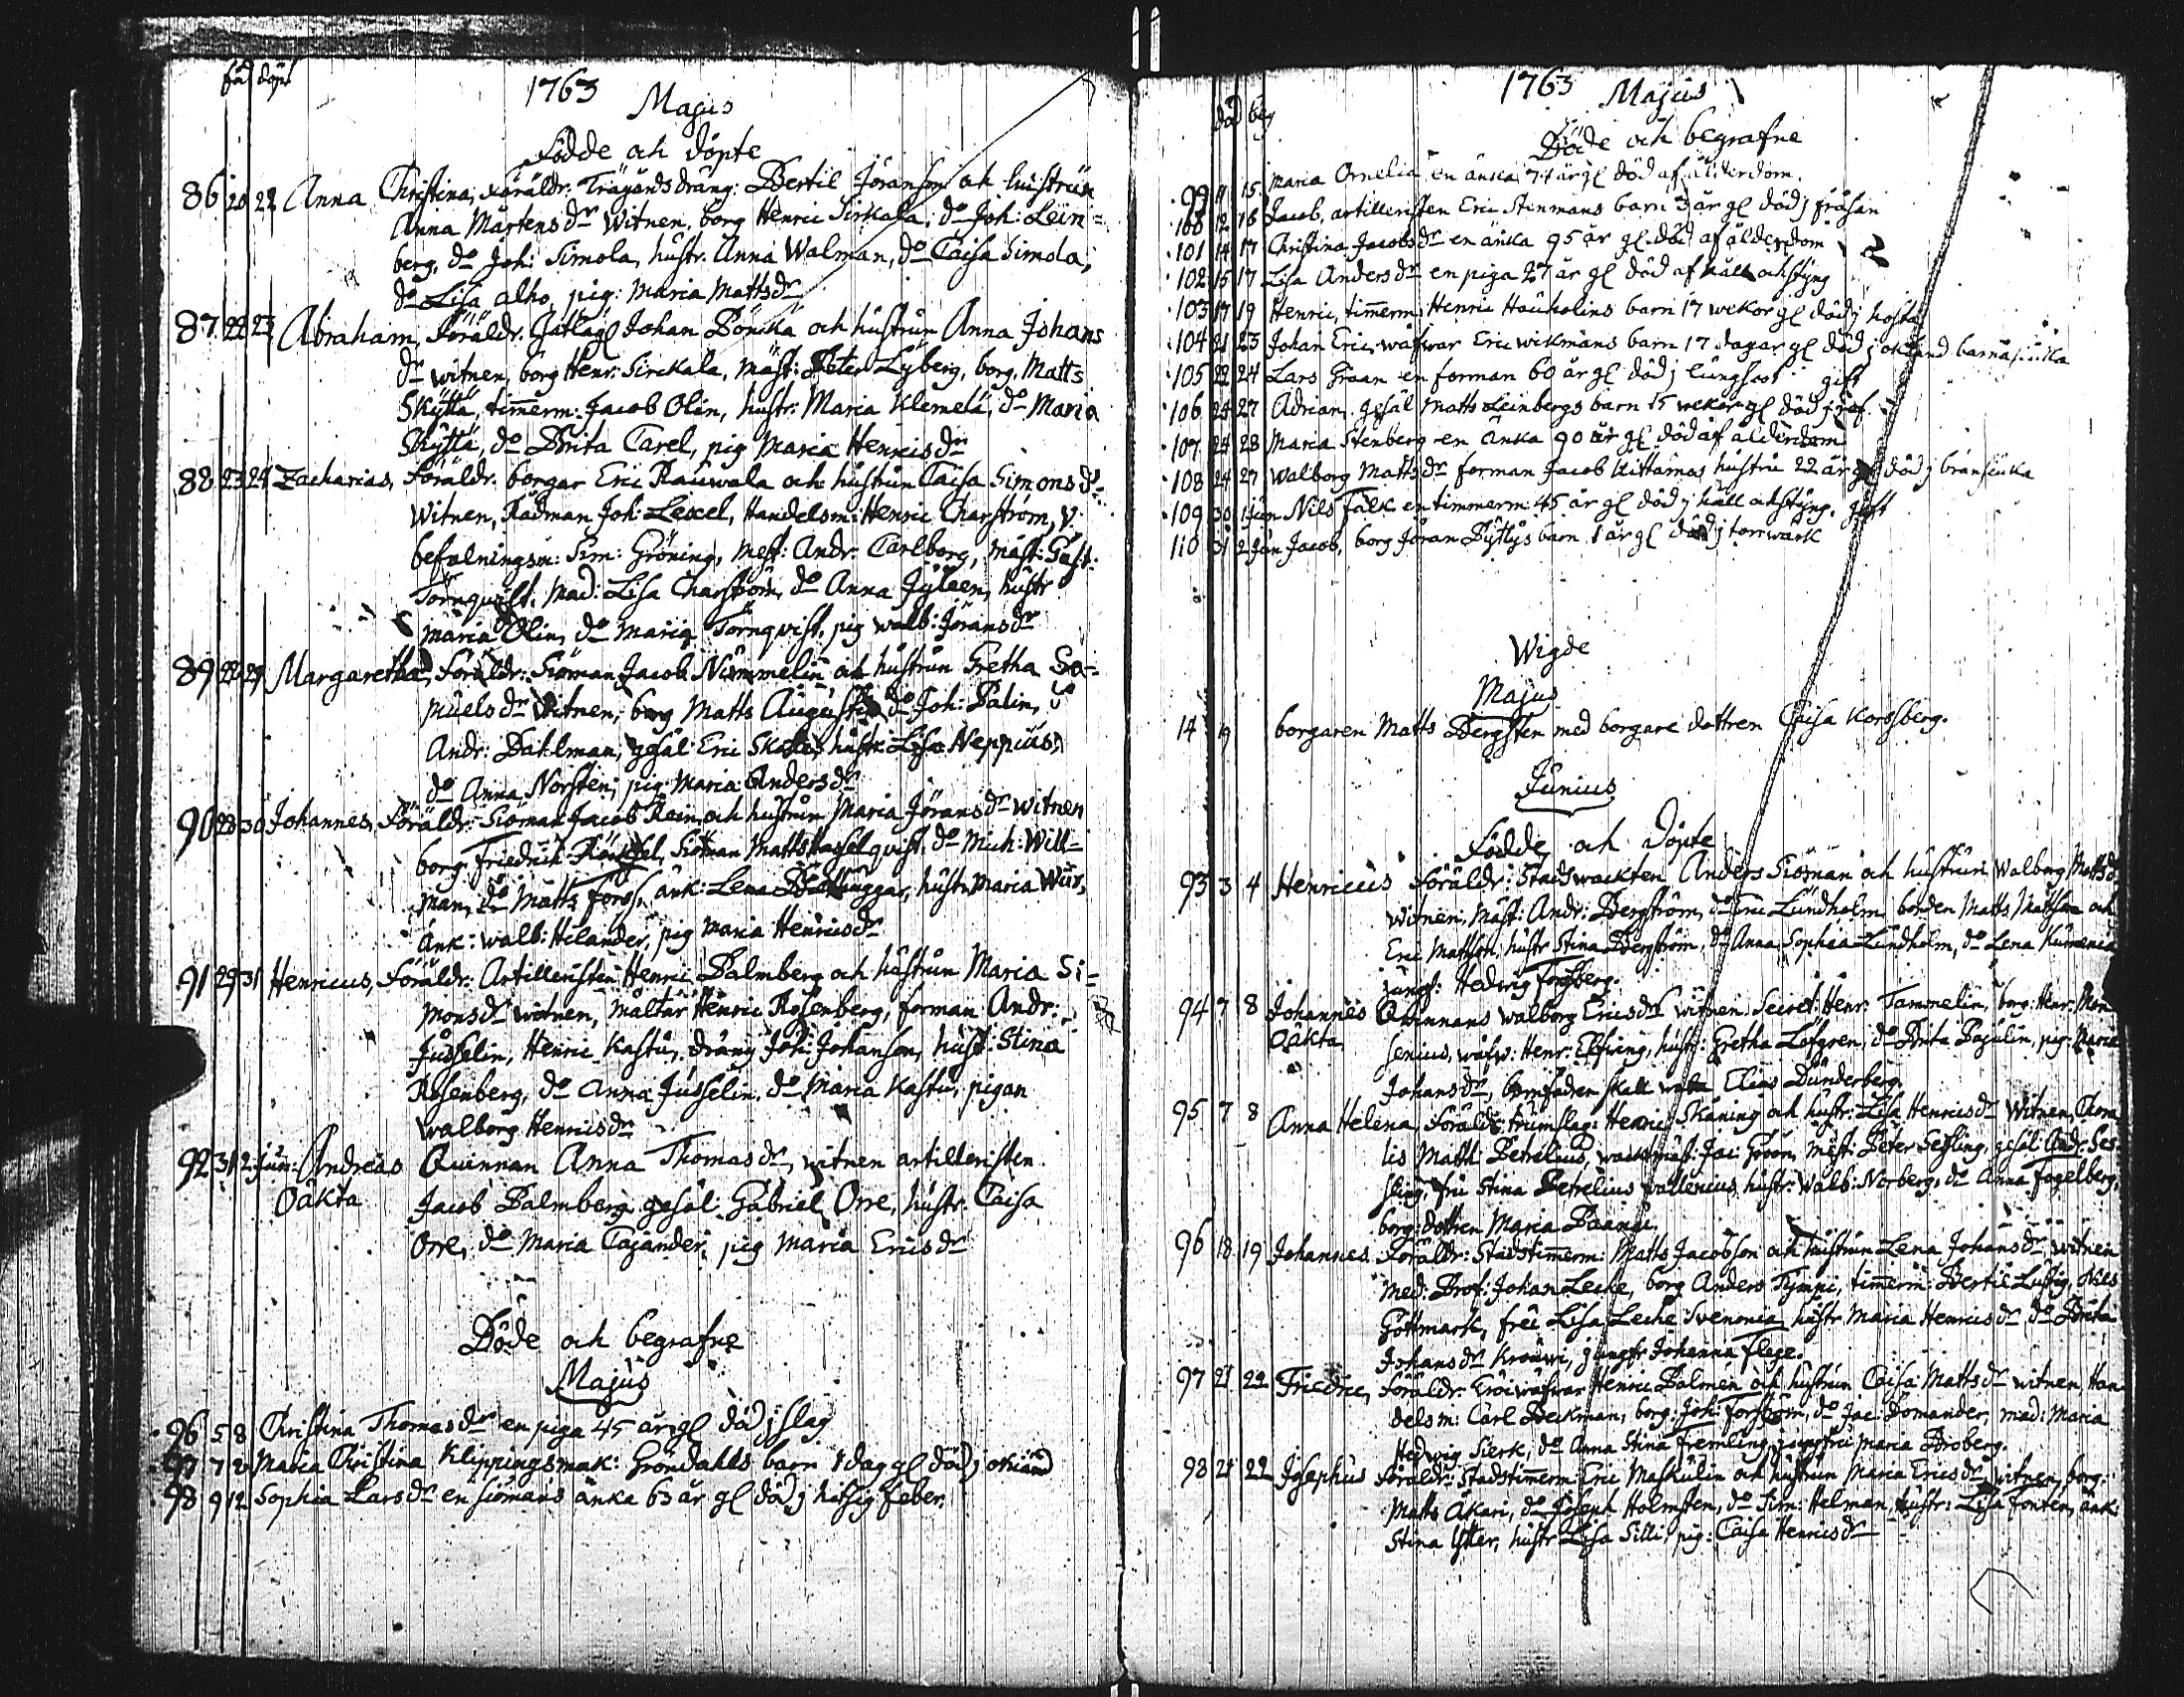 föd döpt
1763
Majus
Födde och döpte
86 20 22 Anna Christina, Föräldr: Trägårdsdräng: Bertil Jöranson och hustrun
Anna Mårtens dr Witnen, borg Henric Sirkala, do Joh: Lein=
berg, do Joh: Simola, hustr. Anna Walman, do Caisa Simola,
do Lisa alho, pig: Maria Matts dr
87 22 23 Abraham, Föräldr. Johan och hustrun Anna Johans
dr witnen, borg Henr: Sirckala, mäst: Peter Lyberg, borg. Matts
Skyttä, timerm: Jacob Olin, hustr: Maria Klemelä, do Maria
Skyttä, do Brita Carel, pig Maria Henrics dr
88 23 24 Zacharias, Föräldr. borgar Eric Rauwala och hustrun Caisa Simons dr
Witnen, Rådman Joh: Lexel, Handelsm: Henric Charström, v.
befalningsm: Sim: Gröning, mest: Andr: Carlborg, mäst: Gust:
Törnqvist, Mad: Lisa Charström, do Anna hustr
maria Olin, do maria Törnqvist, pig walb: Jörans dr
89 29 Margaretha, Föräldr: Siöman Jacob Nummelin och hustrun Gretha Sa=
muels dr Witnen, borg Matts Augustin do Joh: Palin,
Andr: Dahlman, gesäl: Eric hustr: Lisa Neppius,
do Anna Norsten, pig Maria Anders dr
90 28 30 Johannes, Föräldr: Siöman Jacob Rein och hustrun Maria Jörans dr witnen
borg Friedrich Siöman Matts Hasselqvist, do Mich: Will=
man, do Matts Forss, änk: Lena hustr Maria
Ank: walb: Hilander, pig maria Henrics dr
91 29 31 Henricus, Föräldr: Artilleristen Henric Palmberg och hustrun Maria Si=
mons dr witnen, Mältar Henric Rosenberg, forman Andr:
Jusselin, Henric Kastu, dräng Joh: Johanson, hust: Stina
Rosenberg, do Anna Jusselin, do Maria Kastu, pigan
Walborg Henrics dr
92 31 2 Jun: Andreas Quinnan Anna Thomas dr, witnen artilleristen
Oäkta Jacob Palmberg gesäl: Gabriel Orre, hustr. Caisa
Orre, do Maria Cajander, pig Maria Erics dr
Döde och begrafne
Majus
96 5 8 Christina Thomas dr en piga 45 år gl död j slag
97 7 Maria Christina Klippingsmak: Gröndahls barn 1 dag gl död j okiänd
98 9 12 Sophia Lars dr en siömans änka 63 år gl död j hitsig feber.
1763 Majus
död beg
Döde och begrafne
99 11 15 Maria Ornelia en änka 74 år gl död af ålderdom.
100 12 16 Jacob, artilleristen Eric Stenmans barn 3 år gl död j fråsan
101 14 17 Christina Jacobs dr en änka 95 år gl död af ålderdom
102 15 17 Lisa Anders dr en piga 27 år gl död af håll och styng
103 17 19 Henric, timerm: Henric Hauholins barn 17 wekor gl död j hosta
104 21 23 Johan Eric, wäfwar Eric wikmans barn 17 dagar gl död j okänd barnasiuka
105 22 24 Lars Graan en forman 60 år gl död j lungsot gift
106 24 27 Adrian, gesäl Matts Leinbergs barn 15 wekor gl död j
107 24 28 Maria Stenberg en änka 90 år gl död af ålderdom
108 24 27 Walborg Matts dr forman Jacob hustru 22 år gl död j bränsiuka
109 30 1 jun Nils Falk en timmerm 45 år gl död j håll och styng. gift
110 31 2 Jun Jacob, borg Jöran barn 1 år gl död j torrwärk
Wigde
Majus
14 19 borgaren Matts Bergsten med borgare dottren Caisa Korsberg.
Junius
Födde och Döpte
93 3 4 Henricus Föräldr: Stadswackten Anders Siöman och hustrun Walborg Matts dr
witnen, Mäst: Andr: Bergström, do Eric Lundholm, Matts Mattson och
Eric Mattson, hustr Stina Bergström, do Anna Sophia Lundholm, do Lena
jungf: Hedwig Forssberg.
94 7 8 Johannes Quinnans walborg Erics dr witnen Secret: Henr: Tammelin, borg: Henr:
Oäkta wäfw: Henr: Elfving, hustr: Gretha Löfgren, do Brita Pajulin, pig: Maria
Johans dr, barnfadren skall wara Elias Dunderberg.
95 7 8 Anna Helena, Föräldr: trumslag: Henric Skaning och hustr: Lisa Henrics dr Witnen,
Matth Petrelius, Jac: Gröön, Mest: Peter Sesling, gesäl Andr: Ses-
sling, fru Stina Petrelius hustr: Walb: Norberg, do Anna Fogelberg,
borg: dottren Maria
96 18 19 Johannes Föräldr: Stadstimerm: Matts Jacobson och hustrun Lena Johans dr, witnen
Med: Prof: Johan Leche, borg Anders timerm: Bertil Lustig, Nils
Gottmark, fru Lisa Leche Svenonia, hustr Maria Henrics dr, do Brita
Johans dr jungfr Johanna Flege.
97 21 22 Friedric, Föräldr: Henric Palmen och hustrun Caisa Matts dr witnen, Han
delsm: Carl Beckman, borg: Joh: Forström, do Jac: Domander, mad: Maria
Hedwig Sierk, do Anna Stina Fremling, jungfru Maria Broberg.
98 21 22 Josephus Föräldr: Stadstimerm: Eric Maskulin och hustrun Maria Erics dr witnen, borg:
Matts Akari, do Joseph Holmsten, do Sim: Helman, hustr: Lisa Fonten, änk:
Stina hustr Lisa Silli, pig: Caisa Henrics dr